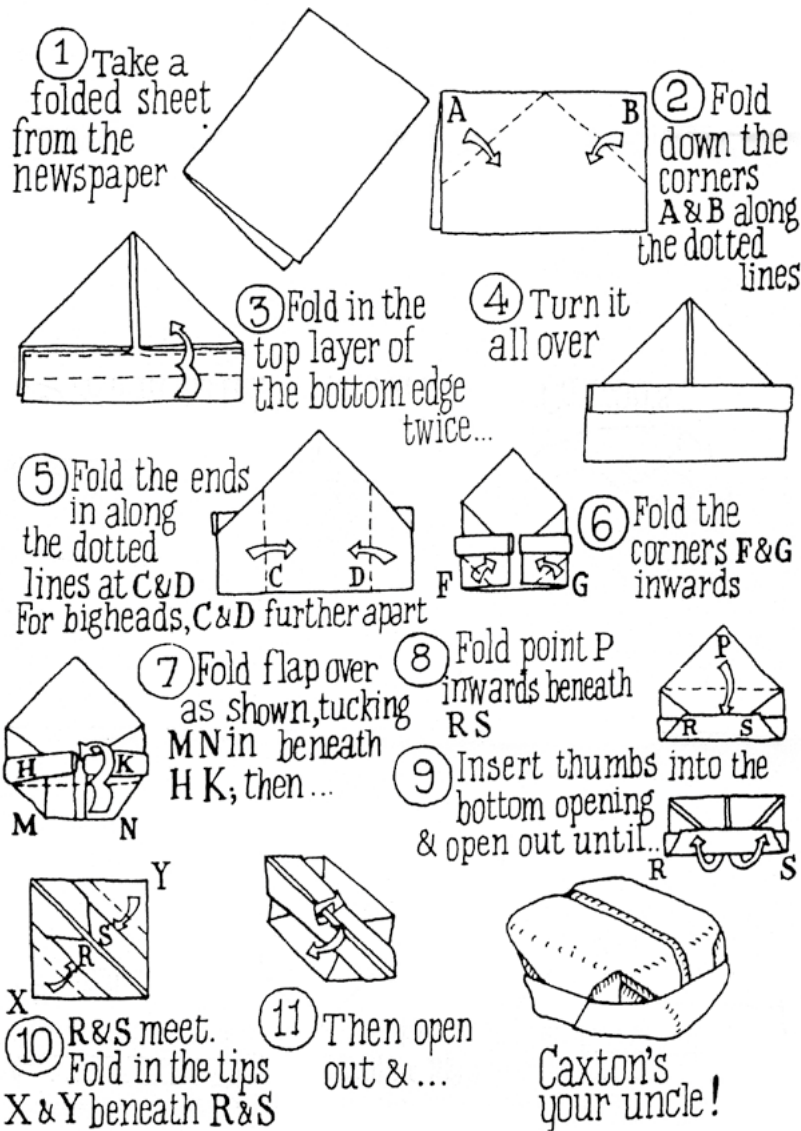 1 Take a
folded sheet
from the
newspaper
A B
2 Fold
down the
corners
A & B along
the dotted
lines
3 Fold in the
top layer of
the bottom edge
twice...
4 Turn it
all over
5 Fold the ends
in along
the dotted
lines at C&D
For bigheads, C&D further apart
C D
6 Fold the
corners F&G
inwards
F G
7 Fold flap over
as shown, tucking
MN in beneath
H K; then ...
H K
M N
8 Fold point P
inwards beneath
R S
P
R S
9 Insert thumbs into the
bottom opening
& open out until..
R S
Y
S
R
X
10 R&S meet.
Fold in the tips
X & Y beneath R&S
11 Then open
out & ...
Caxton's
your uncle!